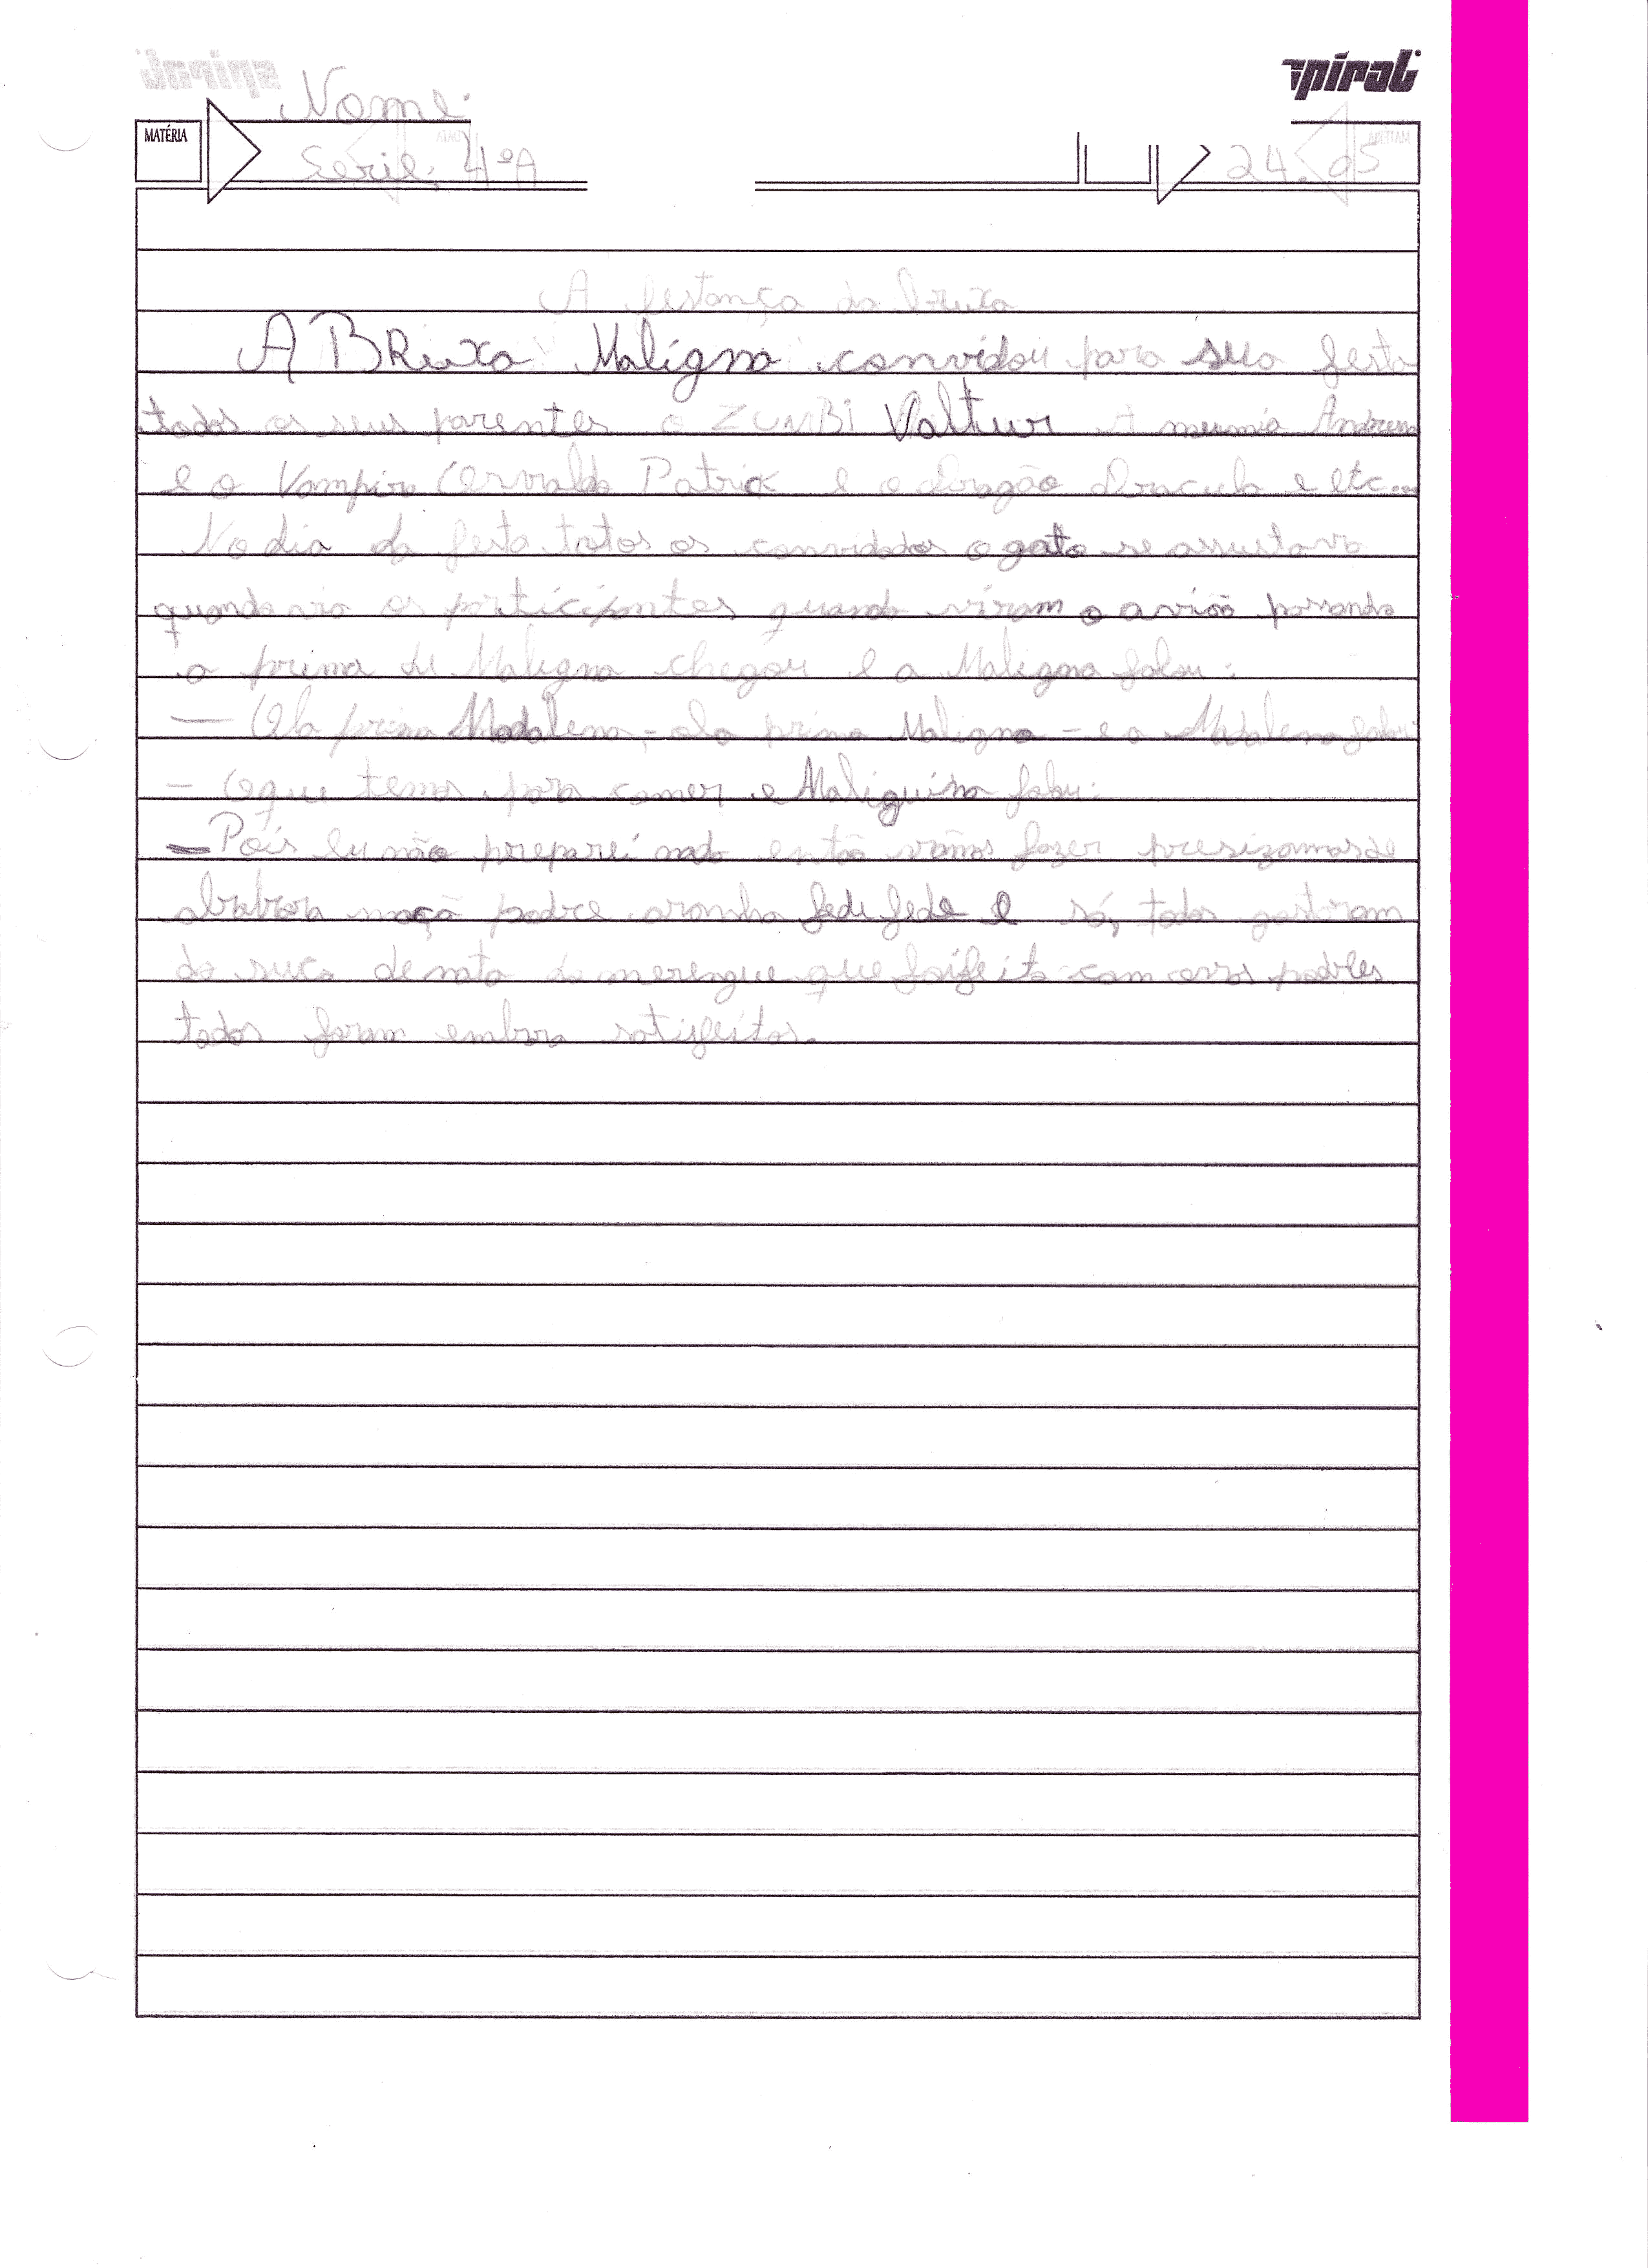 spiral
Nome:
MATÉRIA
Serie: 4ºA 24. 05
A festança da bruxa
A BRuxa Maligna convidou para sua festa
todos os seus parentes o ZUMBi Valtuor A mumia Andrera
e o Vampiro Patrick e o dragão dracula e etc...
No dia da festa totos os convidados o gato se assustava
quando via os participantes quando viram o avião passando
a prima de Maligna chegou e a Maligna falou:
— Ola prima Madalena, - ola prima Maligna - e a Madalena falou
- O que temos para comer e Maliguina falou:
- Pois eu não preparei nada então vamos fazer presizamos de
abobora maçã podre aranha fede fede e só, todos gostaram
do suco de mato do merengue que foi feito com ovos podres
todos foram embora satisfeitos.